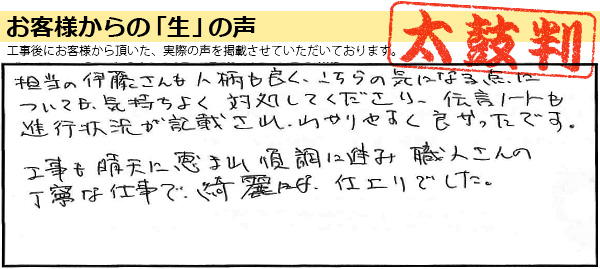 お客様からの「生」の声
太鼓判
工事後にお客様から頂いた、実際の声を掲載させていただいております。
担当の伊藤さんも人柄も良く、こちらの気になる点に
ついても、気持ちよく対処してくださり、伝言ノートも
進行状況が記載され、わかりやすく良かったです。
工事も晴天に恵まれ順調に進み職人さんの
丁寧な仕事で、綺麗な、仕上りでした。